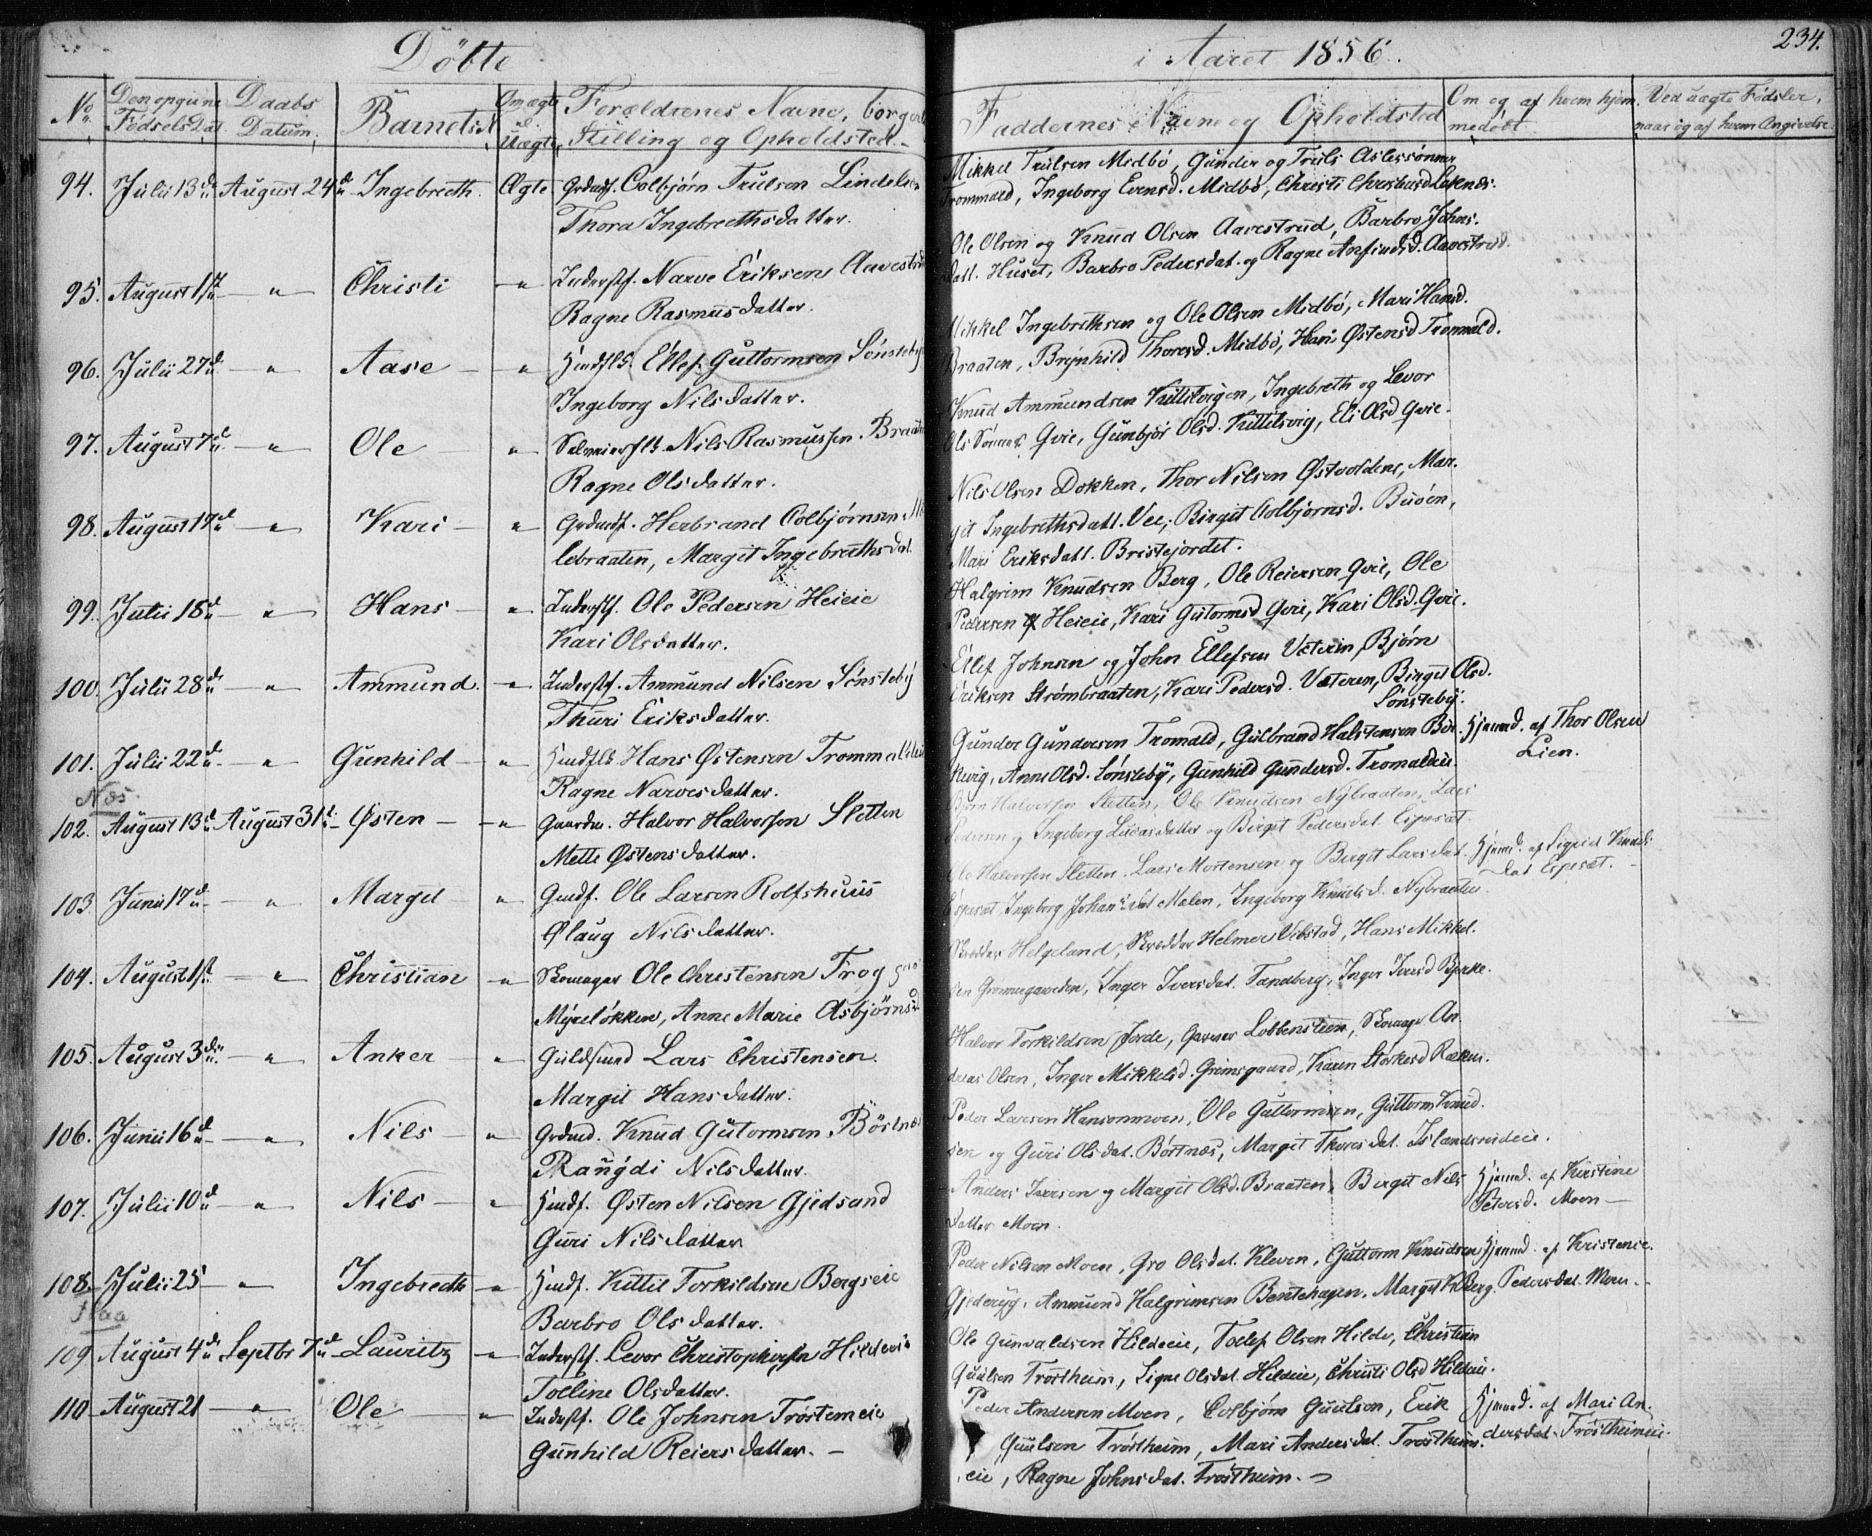 Döbte
i Aaret 1856.
234.
No
Den opgivne Fødsels Dat.
Daabs Datum
Barnets N
Om ægte el. Uægte
Forældrenes Navne, borgerl
Stilling og Opholdsted.
Faddernes Navne og Opholdsted
Om og af hvem hjem medöbt
Ved uægte Födsler, naar og af hvem Angivelse
94. Julii 13de August 24de Ingebreth. Ægte Grdmdf. Colbjørn Trulsen Lindels
Thora Ingebrethsdatter.
Mikkel Trulsen Midbö, Gunder og Truls Aslessønner
Trommald, Ingeborg Evensd. Midbö, Christi Loknæs.
95. August 1ste " Christi " Inderstf. Narve Eriksen Aavestr
Ragne Rasmusdatter.
Ole Olsen og Knud Olsen Aavestrud, Barbro Johns.
datt. Huset, Barbro Pedersdat. og Ragne Anfindsd. Aavestrud.
96. Julii 27de " Aase " Huusflk. Ellef Guttormsen Sönsteby
Ingeborg Nilsdatter.
Mikkel Ingebrethsen og Ole Olsen Midbö, Mari Hansd.
Braaten, Brynhild Thoresd. Midbö, Hari Østensd Trommald.
97. August 7de " Ole " Nils Rasmussen Braaten
Ragne Olsdatter.
Knud Ammundsen Kittilsvigen, Ingebreth og Levor
Ols Sönner Qvie, Gunbjör Olsd. Kittilsvig, Eli Olsd Qvie.
98. August 17de " Kari " Grdmdf. Herbrand Colbjørnsen
lebraaten, Margit Ingebrethsdat.
Nils Olsen Dokken, Thor Nilsen Østvoldene, Mar-
git Ingebrethsdatt. Vee, Birgit Colbjørnsd. Buöen,
Mari Eriksdatt. Bristejordet.
99. Julii 18de " Hans " Inderstf. Ole Pedersen Heieie
Kari Olsdatter.
Halgrim Knudsen Berg, Ole Reiersen Qvie, Ole
Pedersen Heieie, Kari Gutormsd Qvie, Kari Olsd. Qvie.
100. Julii 28de " Ammund. " Inderstf. Ammund Nilsen Sönsteby
Thuri Eriksdatter.
Ellef Johnsen og John Ellefsen Veteren, Bjørn
Eriksen Strömbraaten, Kari Pedersd. Væteren, Birgit Olsd.
Sönsteby.
101. Julii 22de " Gunhild " Huusflk Hans Østensen Trommald
Ragne Narvesdatter.
Gunder Gundersen Tromald, Gulbrand Halstensen Bör-
tevig, Anne Olsd. Sönsteby, Gunhild Gundersd. Tromaldeie.
Hjemmd. af Thor Olsen
Lien.
Næs.
102. August 13de August 31te Østen " Gaardm. Halvor Halvorsen Sletten
Mette Østensdatter.
Björn Halvorsen Sletten, Ole Knudsen Nybraaten, Lars
Pedersen og Ingeborg Lucasdatter og Birgit Pedersdat. Espeset
103. Junii 17de " Margit " Gmdf. Ole Larsen Rolfshuus
Ølaug Nilsdatter.
Ole Halvorsen Sletten, Lars Mortensen og Birgit Larsdat.
Espeset, Ingeborg Johansdat Malen, Ingeborg Knudsd. Nybraaten.
Hjemmd. af Sigrid Knuds-
dat Espeset.
104. August 1ste " Christian " Skomager Ole Christensen Frog
Myreløkken, Anne Marie Asbjørnsd
Skredder Helgeland, Skredder Helmer Vibstad, Hans Mikkel-
sen Grimsgaarden, Inger Iversdat. Tandberg, Inger Iversd Bjerke.
105. August 3die " Anker " Guldsmed Lars Christensen
Margit Hansdatter.
Halvor Torkildsen Jorde, Garver Lobbenstein, Skomager An-
dreas Olsen, Inger Mikkelsd. Grimsgaard, Karen Storkersd Rækm.
106. Junii 16de " Nils " Grdmd. Knud Gutormsen Börtnæs
Rangdi Nilsdatter.
Peder Larsen Hansonmoen, Ole Guttormsen, Guttorm Knud-
sen og Guri Olsdat. Börtnæs, Margit Thoresdat. Islandsrudeie.
107. Julii 10de " Nils " Huusf. Østen Nilsen Gjedsand
Guri Nilsdatter
Anders Iversen og Margit Olsd. Braaten, Birgit Nils
datter Moen.
Hjemmd. af Kirstine
Petersd. Moen
108. Julii 25 " Ingebreth " Huusf. Kittil Torkildsen Bergseie
Barbro Olsdatter.
Peder Nilsen Moen, Gro Olsdat. Kleven, Guttorm Knudsen
Gjederyg, Ammund Halgrimsen Bentehagen, Margit K. Berg.
Hjemmd. af Kristence
Pedersdat. Moen.
Flaa
109 August 4de Septbr 7de Lauritz " Inderstf. Levor Christophersen Hildeeie
Tolline Olsdatter.
Ole Gunvaldsen Hildeeie, Tollef Olsen Hilde, Christian
Guulsen Tröstheim, Signe Olsdat. Hildeie, Christi Olsd Hildeie.
110 August 21 " Ole " Inderstf. Ole Johnsen Tröstemeie
Gunhild Reiersdatter.
Peder Andersen Moen, Colbjørn Guulsen, Erik
Guulsen Tröstheim, Mari Andersdat. Tröstheim-
eie, Ragne Johnsdat. Tröstheim.
Hjemmd. af Mari An-
dersdat. Tröstheimeie.